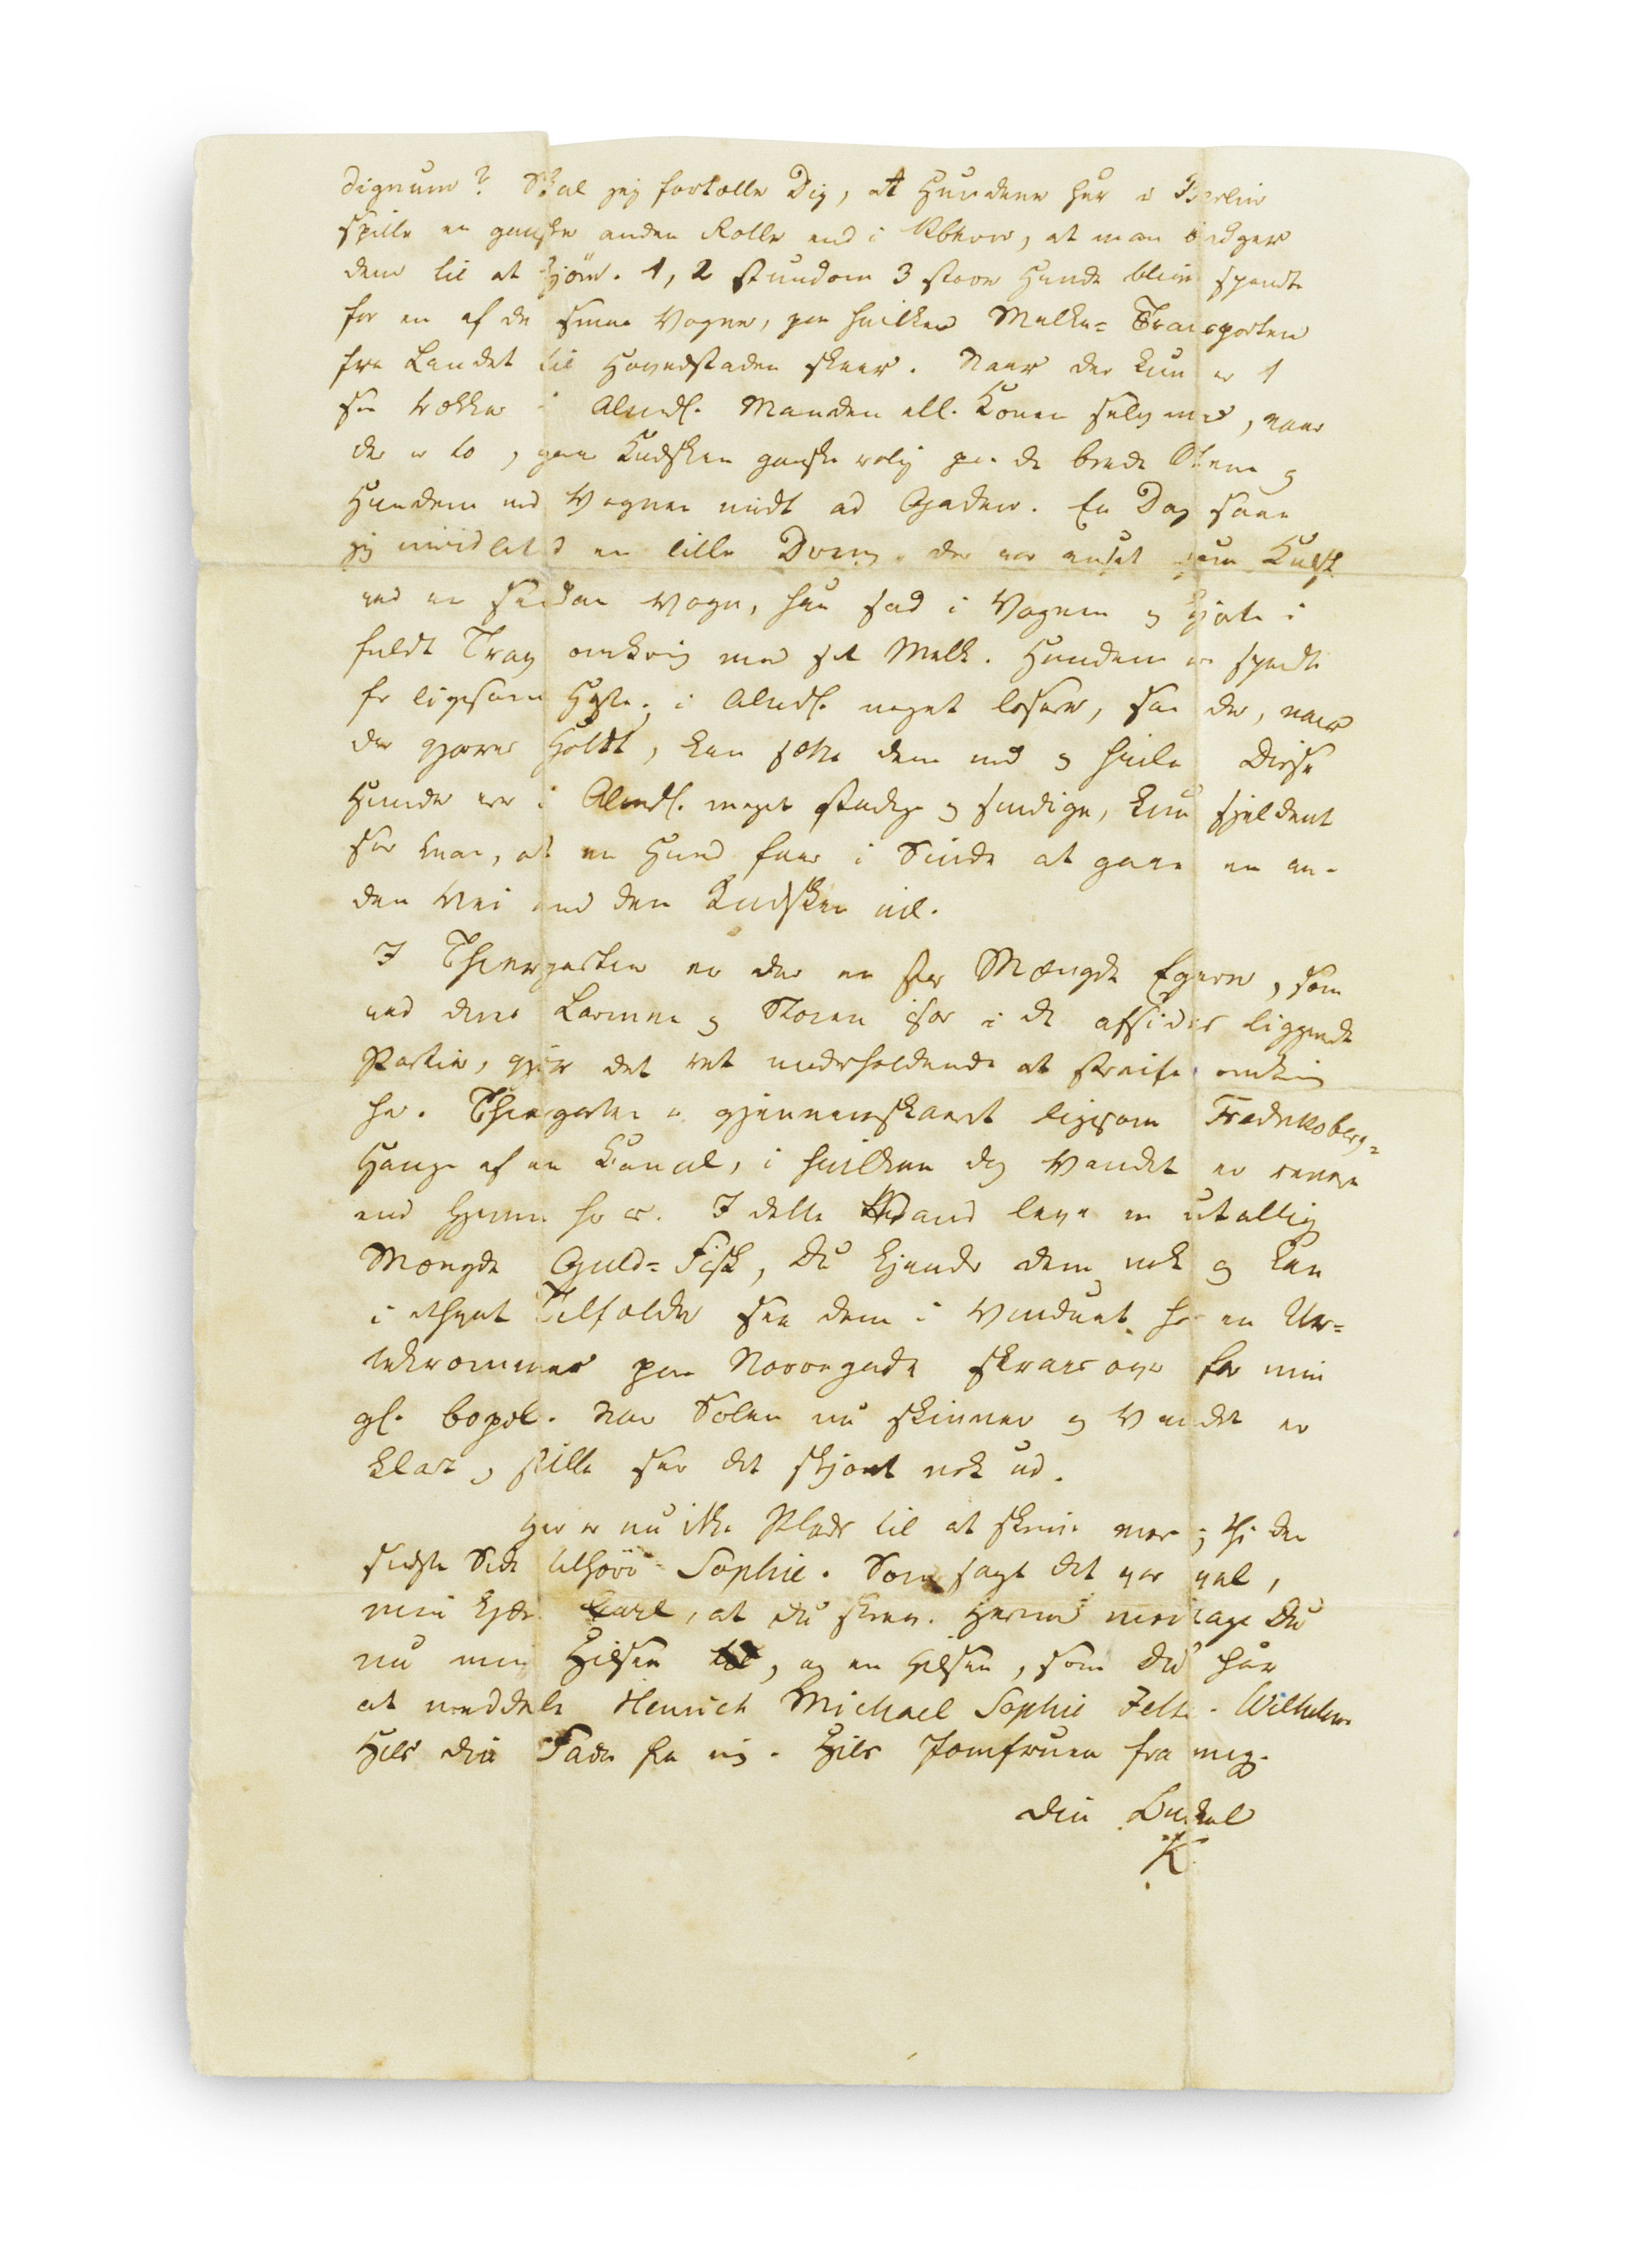 dignum? Skal jeg fortælle Dig, at Hundene her i Berlin
spille en ganske anden Rolle end i Kbhvn, at man bruger
dem til at kjöre. 1, 2 stundom 3 store Hunde blive spændte
for en af de smaa Vogne, paa hvilken Melke-Transporten
fra Landet til Hovedstaden skeer. Naar der kun er 1
saa trækker i Almdl. Manden ell. Konen selv med, naar
der er to, gaaer Kudsken ganske rolig paa de brede Stene og
Hundene med Vognen midt ad Gaden. En Dag saae
jeg imidlertid en lille Dreng der var ansat som Kudsk
ved en saadan Vogn, han sad i Vognen og kjørte i
fuldt Trav omkring med sit Melk. Hundene er spændte
for ligesom Heste, i Almdl. meget løsere, saa de, naar
der gjøres Holdt, kan sætte dem ned og hvile Disse
Hunde ere i Almdl. meget stadige og sindige, kun sjeldent
seer man, at en Hund faaer i Sinde at gaae en an-
den Vei end den Kudsken vil.
I Thiergarten er der en stor Mængde Egern, som
ved deres Larmen og Støien især i de afsides liggende
Partier, gjør det ret underholdende at streife omkring
her. Thiergarten er gjennemskaaret ligesom Fredriksberg-
Hauge af en Canal, i hvilken dog Vandet er renere
end hjemme hos os. I dette Vand leve en utallig
Mængde Guld-Fisk, Du kjender dem nok og kan
i ethvert Tilfælde see dem i Vinduet hos en Ur-
tekræmmer paa Nørregade skraas over for min
gl. Bopæl. Naar Solen nu skinner og Vandet er
klart og stille seer det skjønt nok ud.
Her er nu ikke Plads til at skrive mere; thi den
sidste Side tilhører Sophie. Som sagt det var vel,
min kjære Carl, at Du skrev. Hermed modtage Du
nu min Hilsen, og en Hilsen, som Du har
at meddele Henrich Michael Sophie Jette. Wilhelm
Hils din Fader fra mig. Hils Jomfruen fra mig.
Din Onkel
K.